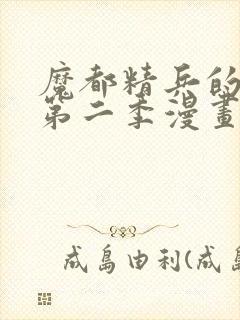 魔都精兵的
第二季漫畫
成島由利(成島